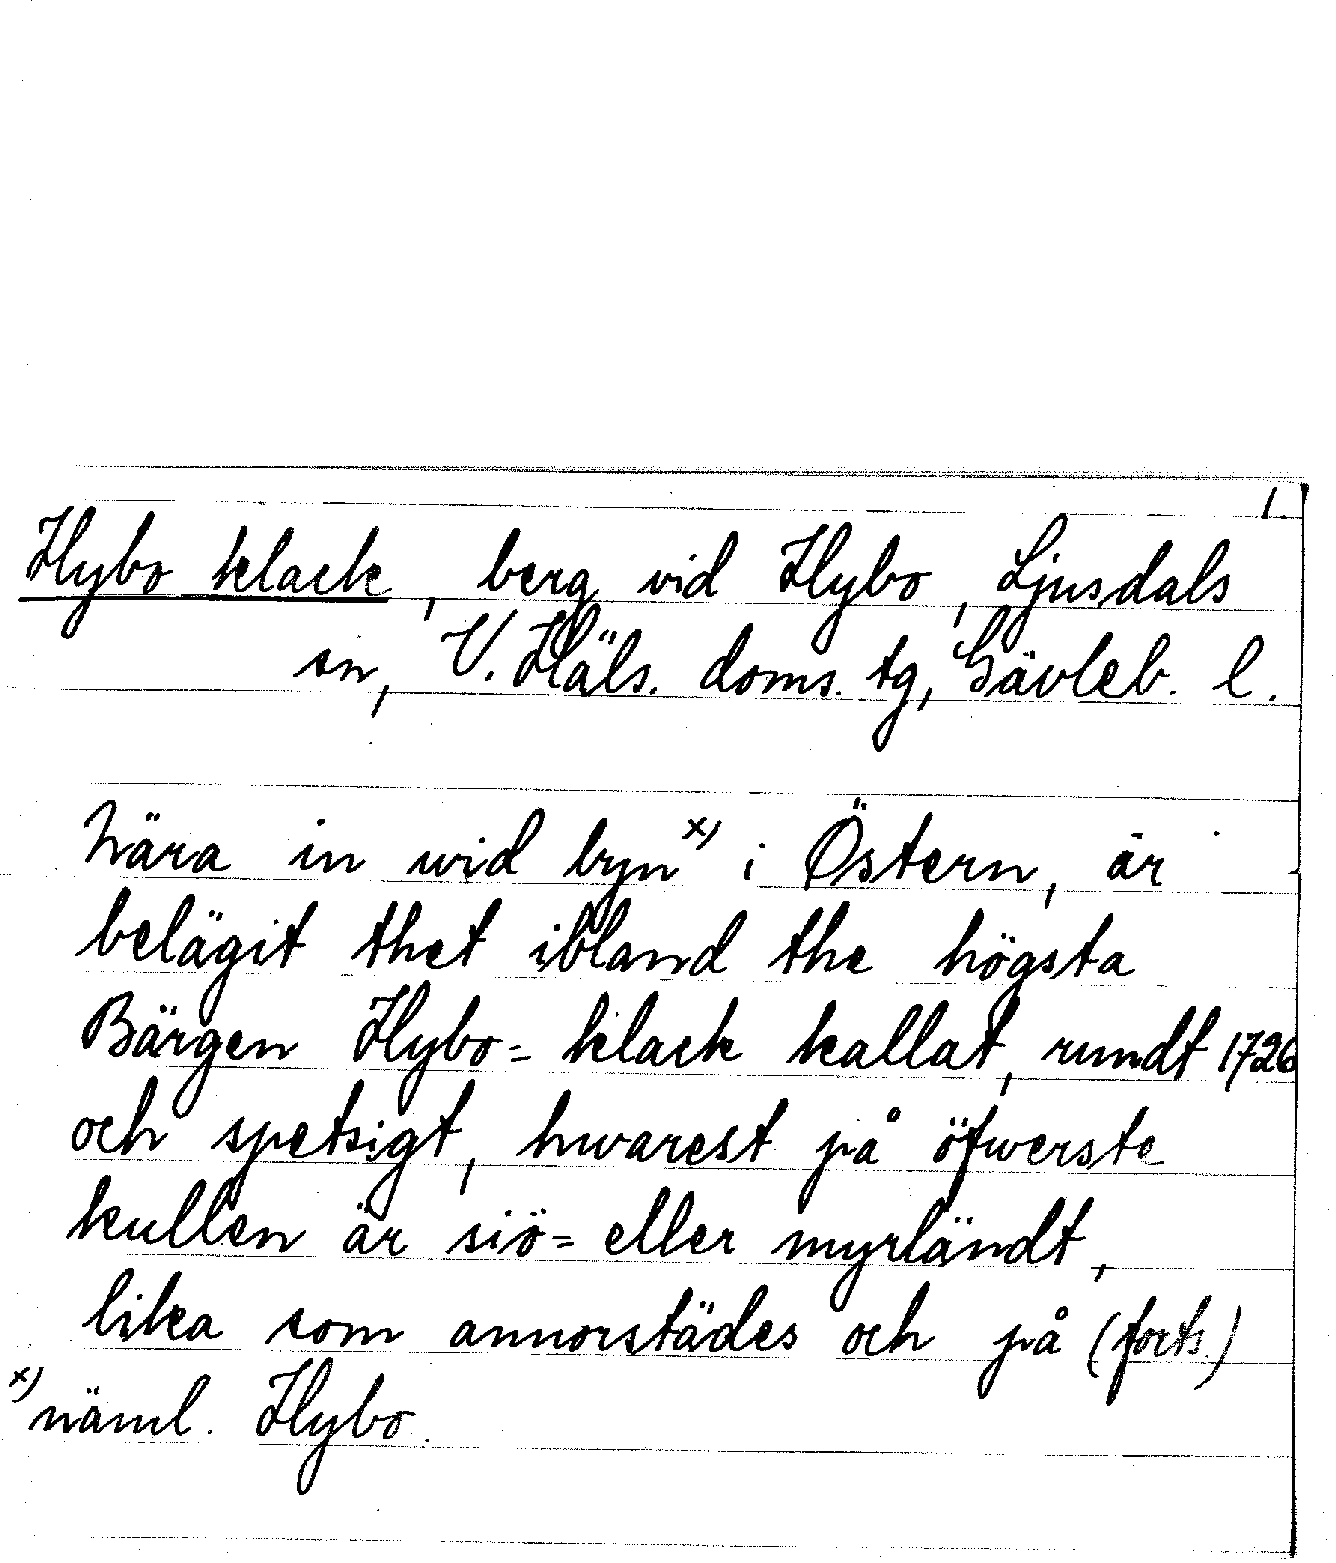 1
Hybo klack, berg vid Hybo, Ljusdals
sn, V. Häls. doms. tg, Gävleb. l.
Nära in wid byn x) i Östern, är
belägit thet ibland the högsta
Bärgen Hybo= klack kallat, rundt 1726
och spetsigt, hwarest på öfwerste
kullen är siö= eller myrländt,
lika som annorstädes och på (forts.)
x) näml. Hybo.